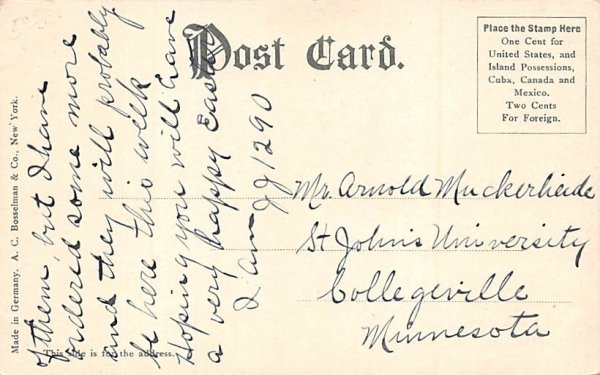 Post Card.
Place the Stamp Here
One Cent for
United States, and
Island Possessions,
Cuba, Canada and
Mexico.
Two Cents
For Foreign.
Made in Germany. A. C. Bosselman & Co., New York.
This side is for the address.
of them, but I have
ordered some more
and they will probably
be here this week
Hoping you will have
a very happy Easter
I am JJ1290
Mr. Arnold Muckerheide
St John's University
Collegeville
Minnesota